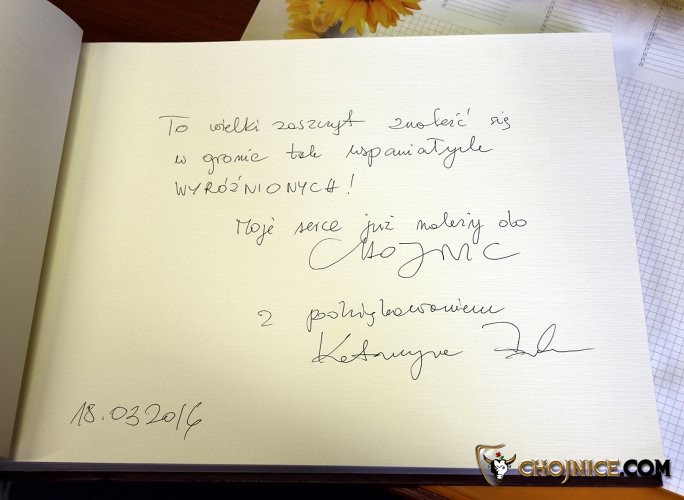 To wielki zaszczyt znaleźć się
w gronie tak wspaniałych
WYRÓŻNIONYCH!
Moje serce już należy do
CHOJNIC
z podziękowaniem
Katarzyna
18.03.2016
CHOJNICE.COM